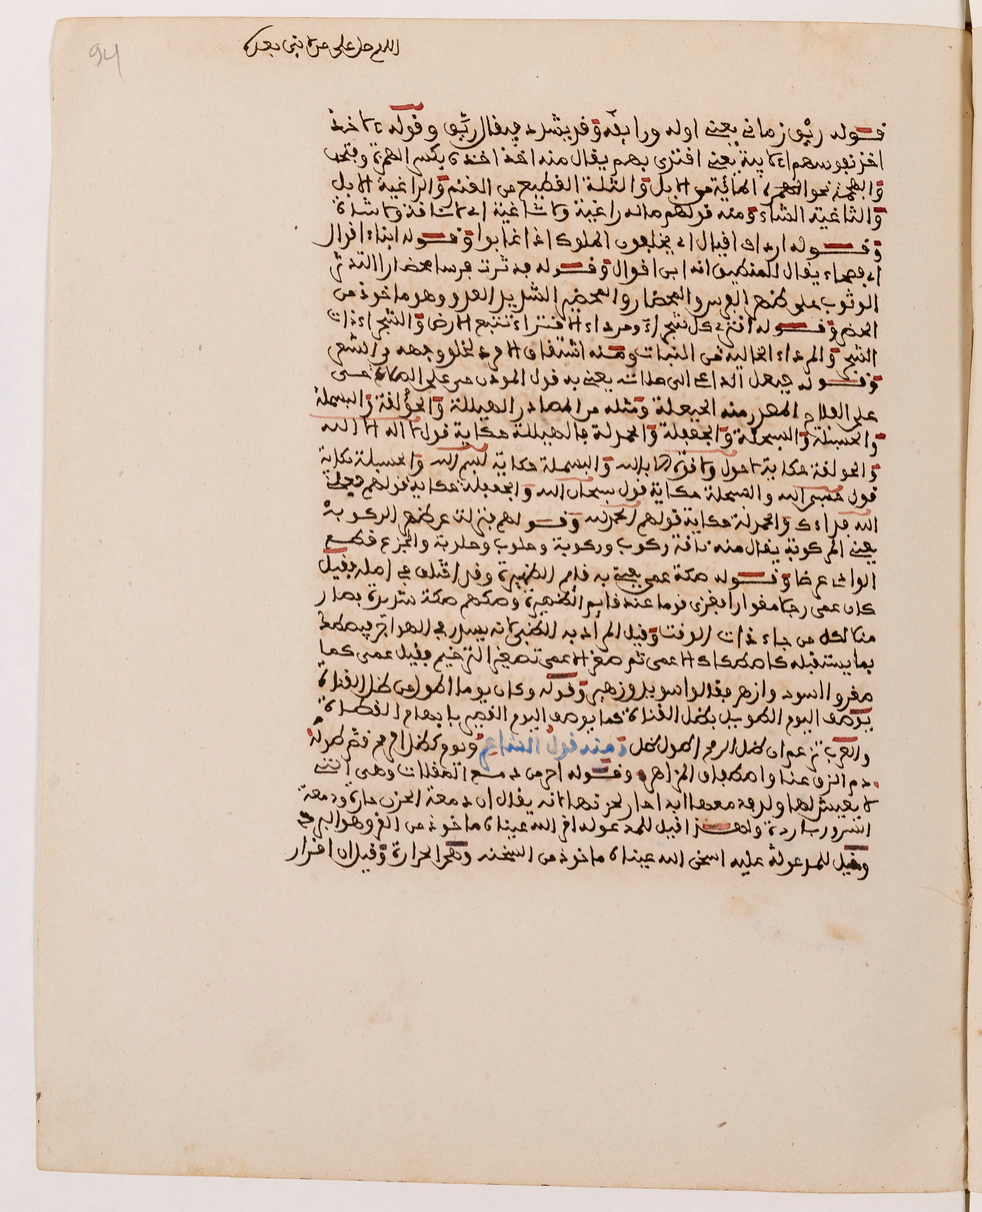 94
اللهم صل على من لا نبي بعده
قوله ريق زماني يعني اوله ورايقه وقد يشدد فيقال ريّق وقوله ءاخذ
اخذ نفوسهم الابية يعني اقتدى بهم يقال منه اخذ اخذه بكسر الهمزة وفتحها
والهجمة نحو المائة من الابل والثلة القطيع من الغنم والراغية الابل
والثاغية الشاء ومنه قولهم ماله راغية ولا ثاغية اي لا ناقة ولا شاة
وقوله ارداف اقيال اي يخلفون الملوك اذا غابوا وقوله ابناء اقوال
اي فصحاء يقال للمنطيق انه ابن اقوال وقوله فدثرت فرسا محضارا التدثر
الوثوب على ظهر الفرس والمحضار والمحضير الشديد العدو وهو ماخوذ من
الحضر وقوله اقتري كل شجراء ومرداء الاقتراء تتبع الارض والشجراء ذات
الشجر والمرداء الخالية من النبات ومنه اشتقاق الامرد لخلو وجهه من الشعر
وقوله حيعل الداعي الى صلاته يعني به قول الموذن حي على الصلاة حي
على الفلاح المصدر منه الحيعلة ومثله من المصادر الهيللة والحولقة والبسملة
والحسبلة والسبحلة والجعفلة والحمدلة فالهيللة حكاية قول لا اله الا الله
والحولقة حكاية لا حول ولا قوة الا بالله والبسملة حكاية بسم الله والحسبلة حكاية
قول حسبي الله والسبحلة حكاية قول سبحان الله والجعفلة حكاية قولهم جعلني
الله فداءك والحمدلة حكاية قولهم الحمد لله وقولهم فنزلت عن ظهر الركوبة
يعني المركوبة يقال منه ناقة ركوب وركوبة وحلوب وحلوبة والجزع قطع
الوادي عرضا وقوله صكة عمي يعني به قايم الظهيرة وقد اختلف في اصله فقيل
كان عمي رجلا مغوارا فغزى قوما عند قايم الظهيرة وصكهم صكة شديدة فصار
مثلا لكل من جاء ذلك الوقت وقيل المراد به الظبي لانه يسدر في الهواجر فيصطك
بما يستقبله كاصطكاك الاعمى ثم صغر الاعمى تصغير الترخيم فقيل عمي كما
صغروا اسود وازهر فقالوا سويد وزهير وقوله وكان يوما اطول من ظل القناة
يوصف اليوم الطويل بظل القناة كما يوصف اليوم القصير بابهام القطاة
والعرب تزعم ان ظل الرمح اطول ظل ومنه قول الشاعر ويوم كظل الرمح قصر طوله
دم الزق عنا واصطفاق المزاهر وقوله احر من دمع المقلات وهي التي
لا يعيش لها ولد فدمعها ابدا حار لحزنها لانه يقال ان دمعة الحزن حارة ودمعة
السرور باردة ولهذا قيل للمدعو له اقر الله عينه ماخوذ من القر وهو البرد
وقيل للمدعو عليه اسخن الله عينه ماخوذ من السخنة وهي الحرارة وقيل ان اقرار